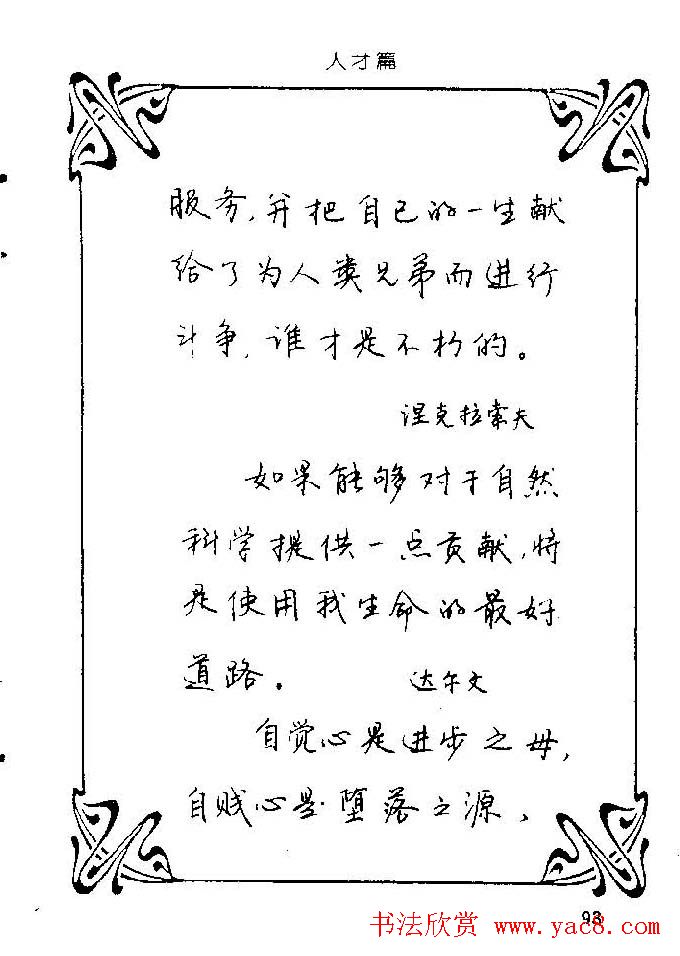 人才篇
服务,并把自己的一生献
给了为人类兄弟而进行
斗争,谁才是不朽的。
涅克拉索夫
如果能够对于自然
科学提供一点贡献,将
是使用我生命的最好
道路。 达尔文
自觉心是进步之母,
自贱心是堕落之源,
93
书法欣赏 www.yac8.com